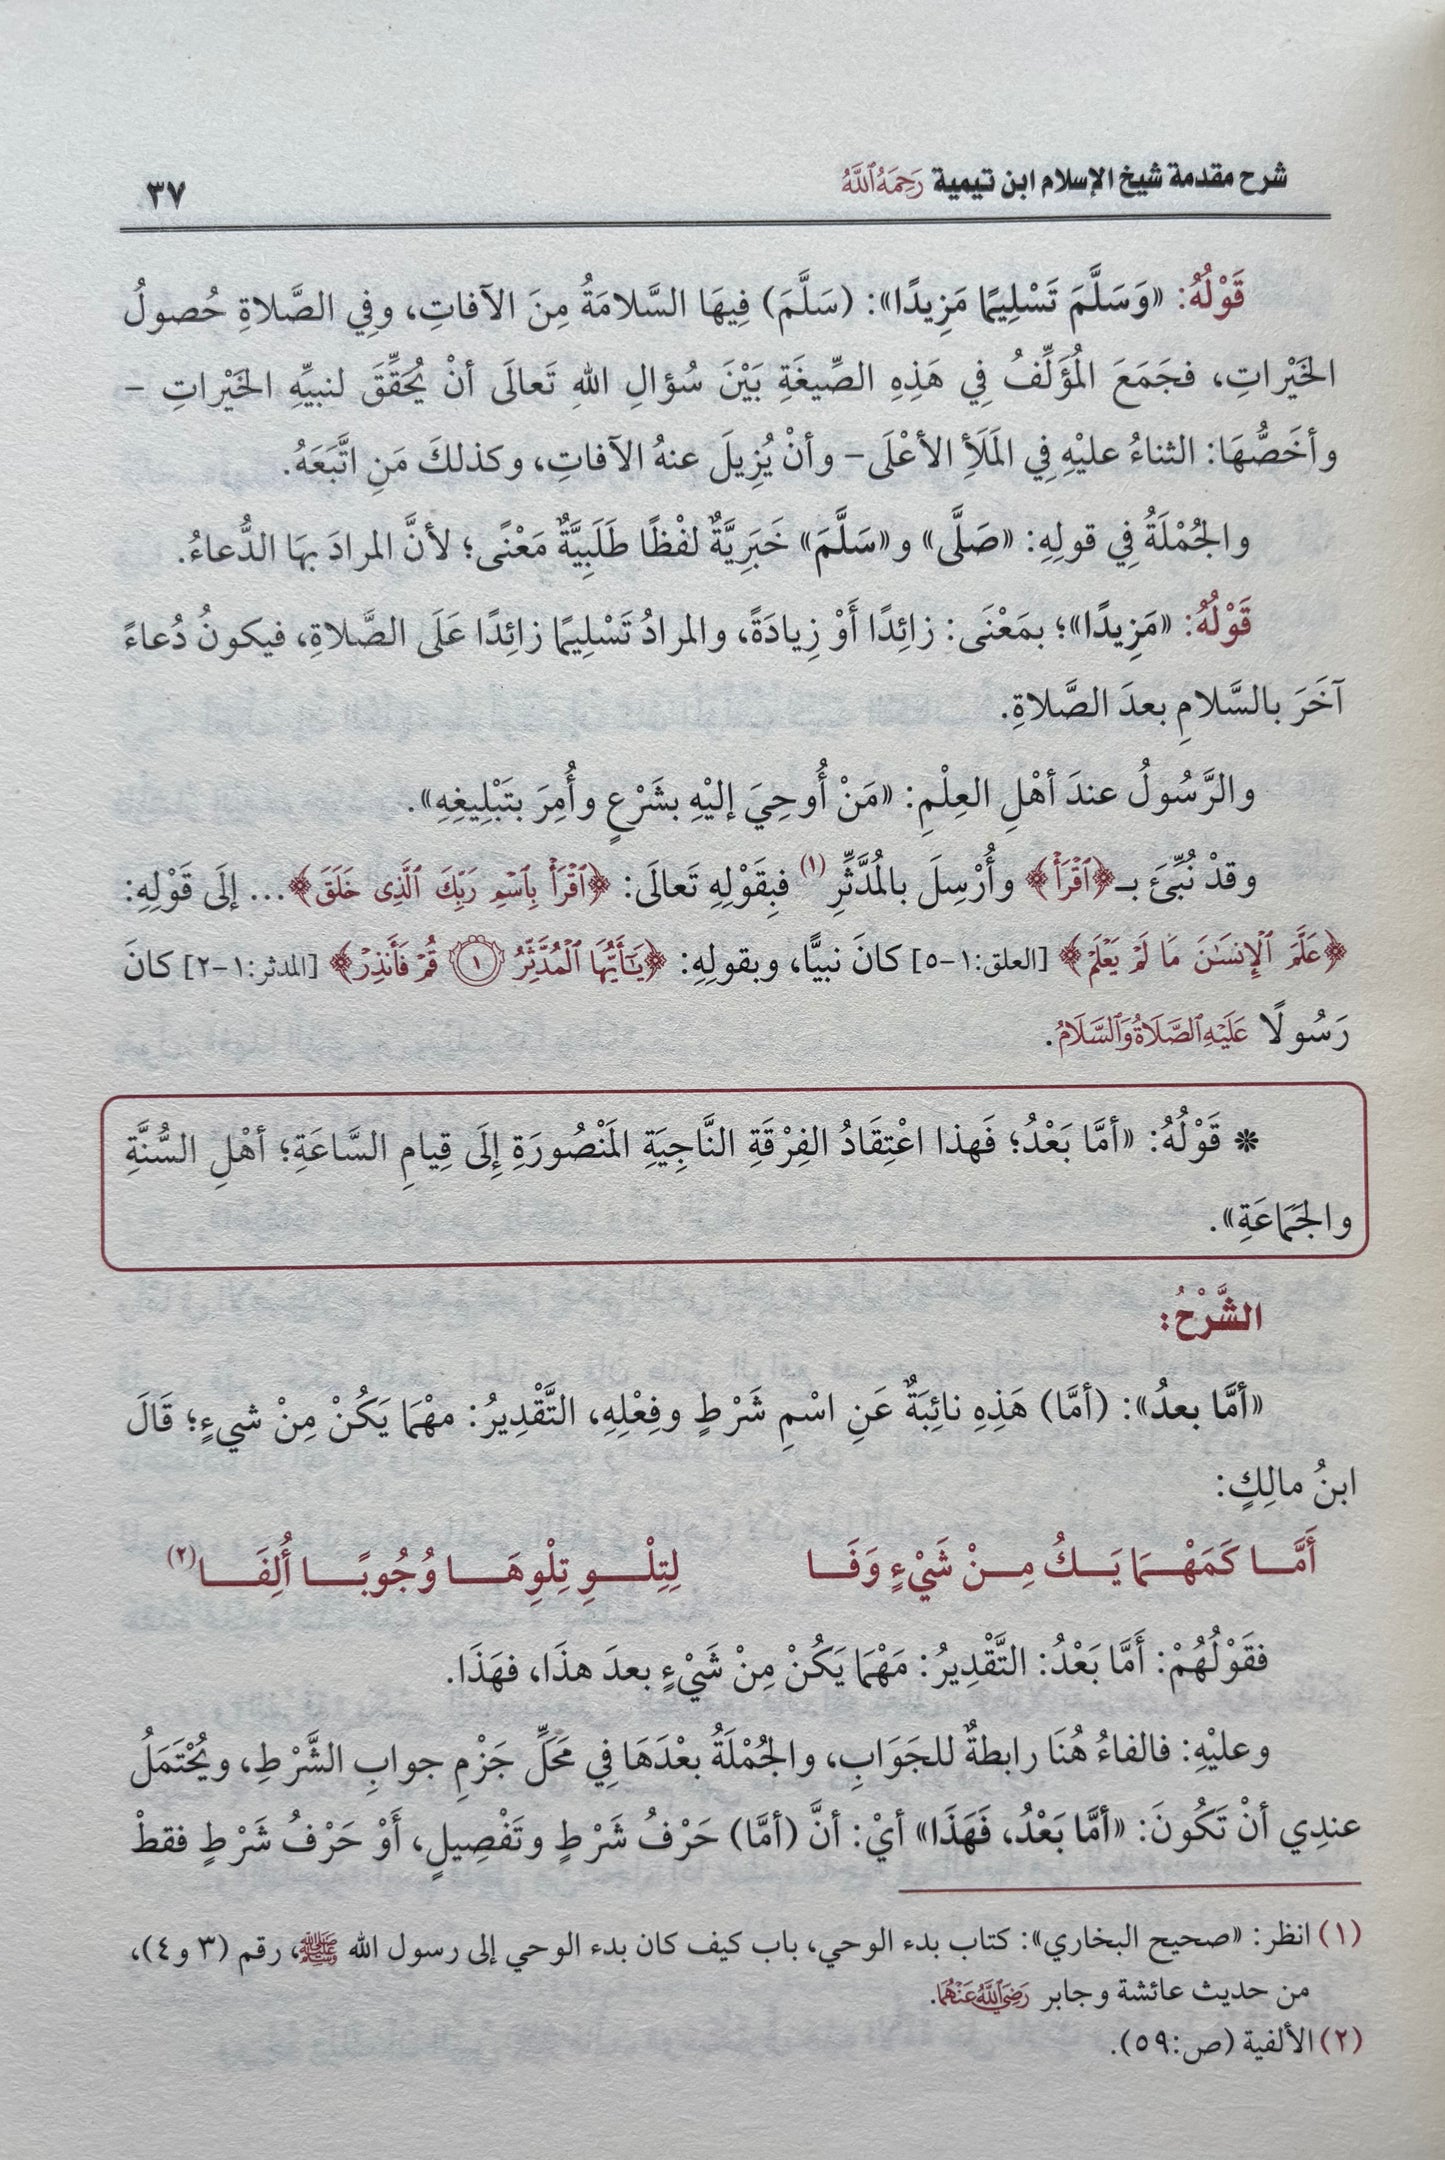 شرح مقدمة شيخ الإسلام ابن تيمية رَحِمَهُ ٱللَّهُ ٣٧
قَوْلُهُ: «وَسَلَّمَ تَسْلِيمًا مَزِيدًا»: (سَلَّمَ) فِيهَا السَّلامَةُ مِنَ الآفاتِ، وفِي الصَّلاةِ حُصولُ
الخَيْراتِ، فجَمَعَ المُؤَلِّفُ فِي هَذِهِ الصِّيغَةِ بَيْنَ سُؤالِ اللهِ تَعالَى أنْ يُحَقِّقَ لنبيِّهِ الخَيْراتِ –
وأخَصُّهَا: الثناءُ عليْهِ فِي المَلَأِ الأعْلَى– وأنْ يُزِيلَ عنهُ الآفاتِ، وكذلكَ مَنِ اتَّبَعَهُ.
والجُمْلَةُ فِي قولِهِ: «صَلَّى» و«سَلَّمَ» خَبَرِيَّةٌ لفْظًا طَلَبِيَّةٌ مَعْنًى؛ لأنَّ المرادَ بهَا الدُّعاءُ.
قَوْلُهُ: «مَزِيدًا»؛ بمَعْنَى: زائِدًا أَوْ زِيادَةً، والمرادُ تَسْلِيمًا زائِدًا عَلَى الصَّلاةِ، فيكونُ دُعاءً
آخَرَ بالسَّلامِ بعدَ الصَّلاةِ.
والرَّسُولُ عندَ أهْلِ العِلْمِ: «مَنْ أُوحِيَ إليْهِ بشَرْعٍ وأُمِرَ بتَبْلِيغِهِ».
وقدْ نُبِّئَ بـ﴿ٱقْرَأْ﴾ وأُرْسِلَ بالمُدَّثِّرِ(١) فبِقَوْلِهِ تَعالَى: ﴿ٱقْرَأْ بِٱسْمِ رَبِّكَ ٱلَّذِى خَلَقَ﴾... إلَى قَوْلِهِ:
﴿عَلَّمَ ٱلْإِنسَٰنَ مَا لَمْ يَعْلَمْ﴾ [العلق:١-٥] كانَ نبيًّا، وبقولِهِ: ﴿يَٰٓأَيُّهَا ٱلْمُدَّثِّرُ ١ قُمْ فَأَنذِرْ﴾ [المدثر:١-٢] كانَ
رَسُولًا عَلَيْهِ ٱلصَّلَاةُ وَٱلسَّلَامُ.
* قَوْلُهُ: «أمَّا بَعْدُ؛ فَهذا اعْتِقَادُ الفِرْقَةِ النَّاجِيَةِ المَنْصُورَةِ إِلَى قِيامِ السَّاعَةِ؛ أهْلِ السُّنَّةِ
والجَمَاعَةِ».
الشَّرْحُ:
«أمَّا بعدُ»: (أمَّا) هَذِهِ نائِبَةٌ عَنِ اسْمِ شَرْطٍ وفِعْلِهِ، التَّقْدِيرُ: مهْمَا يَكُنْ مِنْ شيءٍ؛ قَالَ
ابنُ مالِكٍ:
أَمَّــا كَمَهْــمَا يَــكُ مِــنْ شَيْءٍ وَفَــا لِتِلْــــوِ تِلْوِهَــــا وُجُوبًــــا أُلِفَــــا(٢)
فقَوْلُهُمْ: أَمَّا بَعْدُ: التَّقْدِيرُ: مَهْمَا يَكُنْ مِنْ شَيْءٍ بعدَ هذَا، فهَذَا.
وعليْهِ: فالفاءُ هُنَا رابطةٌ للجَوَابِ، والجُمْلَةُ بعْدَهَا فِي مَحَلِّ جَزْمِ جوابِ الشَّرْطِ، ويُحْتَمَلُ
عندِي أنْ تَكُونَ: «أمَّا بَعْدُ، فَهَذَا» أيْ: أنَّ (أمَّا) حَرْفُ شَرْطٍ وتَفْصِيلٍ، أَوْ حَرْفُ شَرْطٍ فقطْ
(١) انظر: «صحيح البخاري»: كتاب بدء الوحي، باب كيف كان بدء الوحي إلى رسول الله ﷺ، رقم (٣ و٤)،
من حديث عائشة وجابر رَضِيَ ٱللَّهُ عَنْهُمَا.
(٢) الألفية (ص:٥٩).